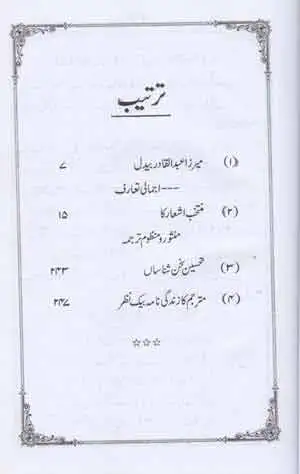 ترتیب
(۱) میرزا عبدالقادر بیدل ۷
--- اجمالی تعارف
(۲) منتخب اشعار کا ۱۵
منثور و منظوم ترجمہ
(۳) تحسین سخن شناساں ۲۴۳
(۴) مترجم کا زندگی نامہ بیک نظر ۲۴۷
☆☆☆